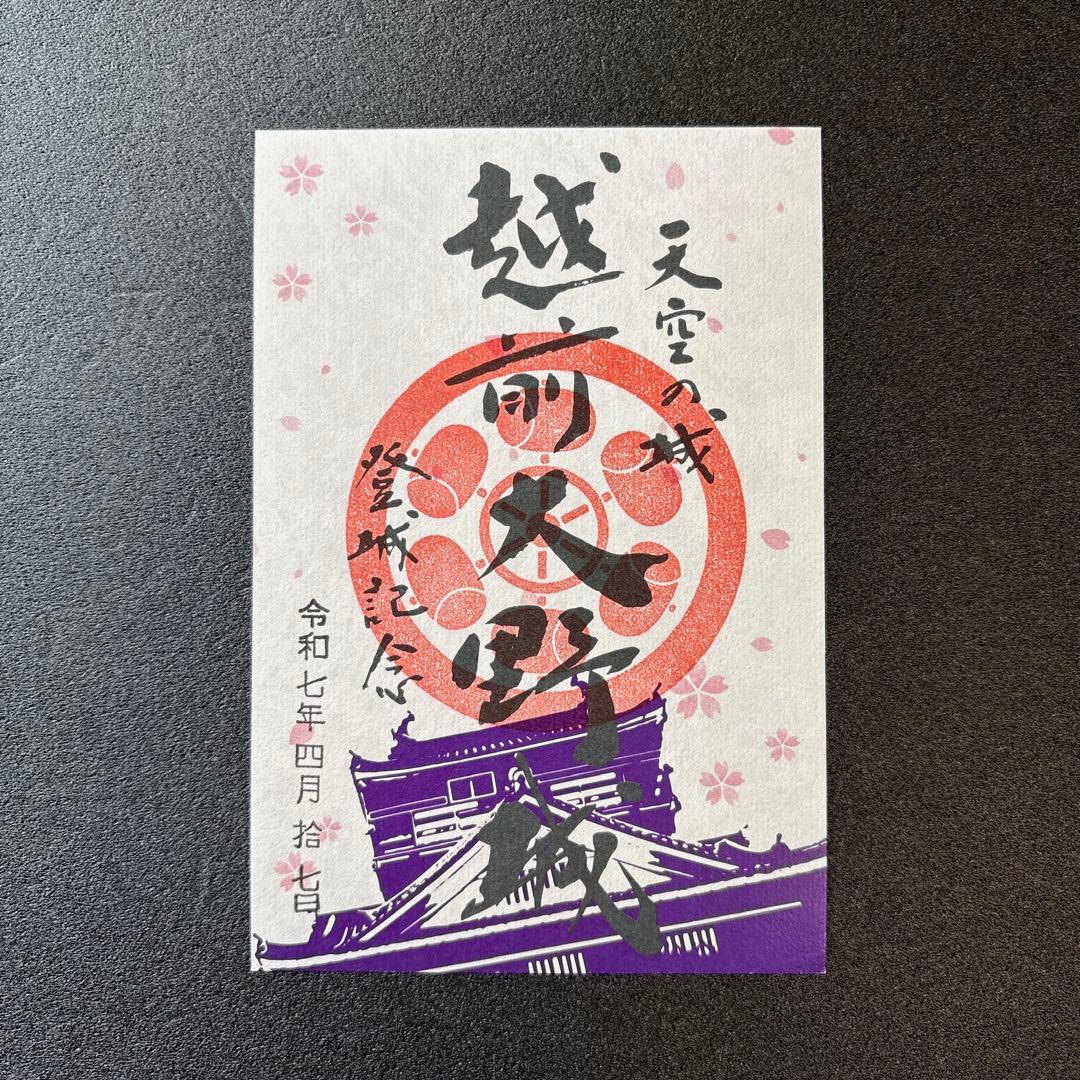 天空の城
越前大野城
登城記念
令和七年四月拾七日